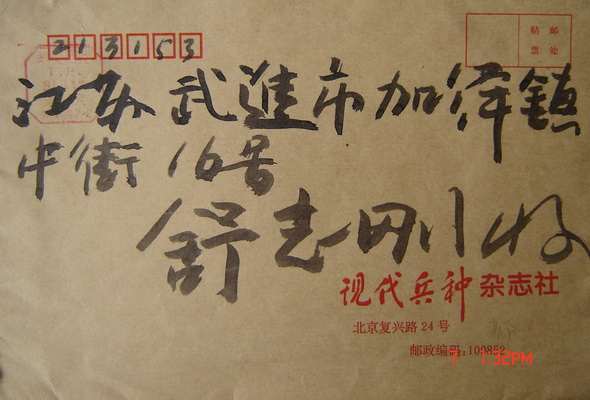 213153
贴邮
票处
江苏 武進市加泽鎮
中街 16号
舒志刚 收
现代兵种杂志社
北京复兴路24号
邮政编码:100852
1:32PM